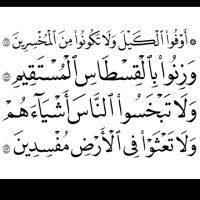 ۞ أَوْفُوا۟ ٱلْكَيْلَ وَلَا تَكُونُوا۟ مِنَ ٱلْمُخْسِرِينَ ١٨١
وَزِنُوا۟ بِٱلْقِسْطَاسِ ٱلْمُسْتَقِيمِ ١٨٢
وَلَا تَبْخَسُوا۟ ٱلنَّاسَ أَشْيَآءَهُمْ
وَلَا تَعْثَوْا۟ فِى ٱلْأَرْضِ مُفْسِدِينَ ١٨٣